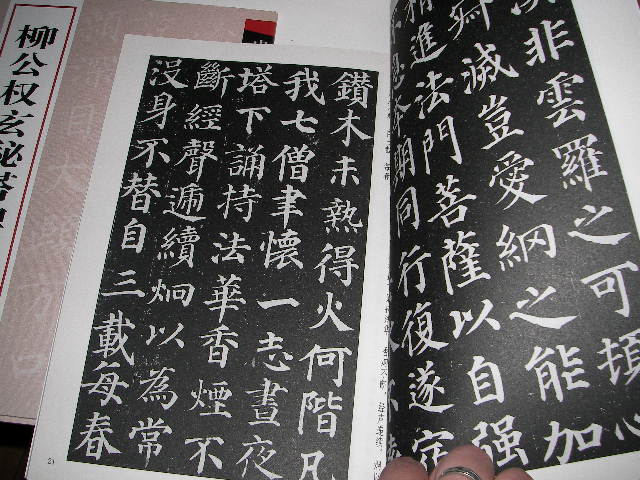 柳公权玄秘塔
非雲羅之可頓心
滅豈愛網之能加
精進法門菩薩以自强
期同行復遂定
鑽木未熟得火何階凡
我七僧聿懷一志晝夜
塔下誦持法華香煙不
斷經聲遍續炯以為常
沒身不替自三載每春